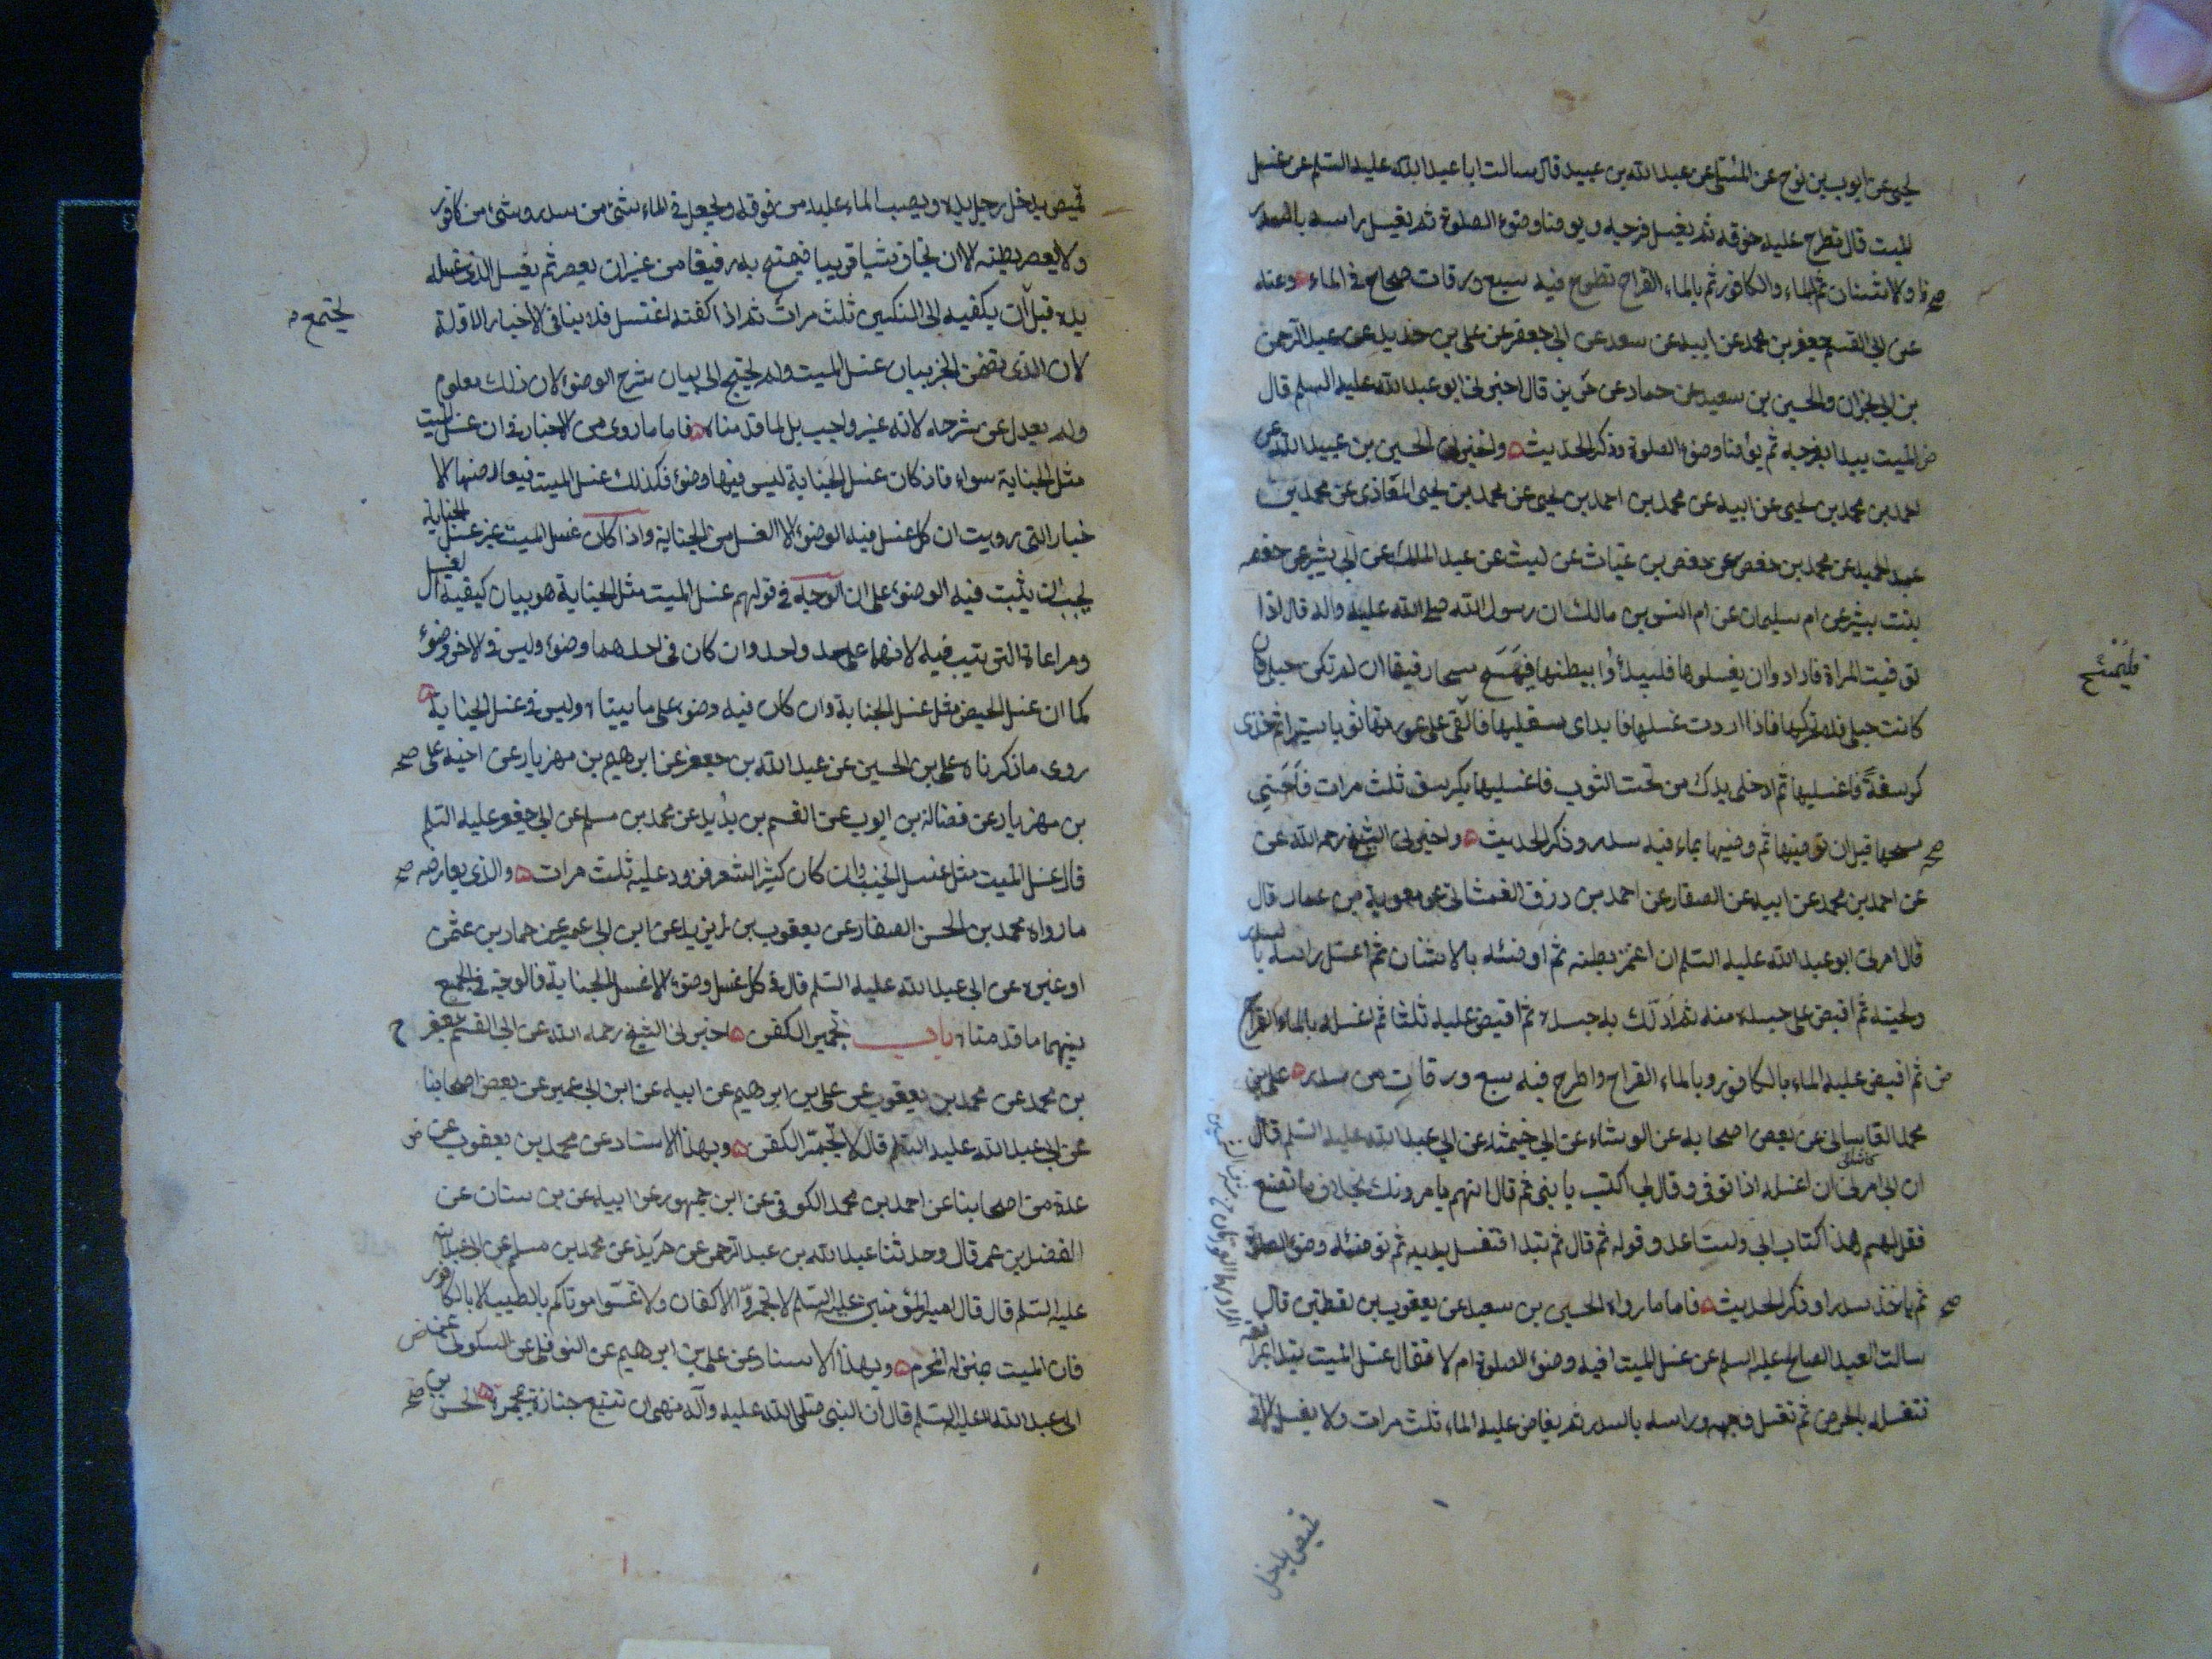 يحيى عن ايوب بن نوح عن المسلي عن عبد الله بن عبيد قال سالت ابا عبد الله عليه السلم عن غسل
الميت قال تطرح عليه خرقه ثم يغسل فرجه ويوضا وضوء الصلوة ثم يغسل راسه بالسدر
والاشنان ثم الماء والكافور ثم بالماء القراح تطرح فيه سبع ورقات صحاح في الماء وعنه
عن ابي القسم جعفر بن محمد عن ابيه عن سعد عن ابي جعفر عن علي بن حديد عن عبد الرحمن
بن ابي نجران والحسين بن سعيد عن حماد عن حريز قال اخبرني ابو عبد الله عليه السلم قال
الميت يبدا بفرجه ثم يوضا وضوء الصلوة وذكر الحديث واخبرني الحسين بن عبيد الله عن
احمد بن محمد بن يحيى عن ابيه عن محمد بن احمد بن يحيى عن محمد بن يحيى المعاذي عن محمد بن
عبد الحميد عن محمد بن حفص عن حفص بن غياث عن ليث عن عبد الملك عن ابي بشير عن حفصه
بنت بشير عن ام سليمان عن ام انس بن مالك ان رسول الله صلى الله عليه واله قال اذا
توفيت المراة فارادوان يغسلوها فليبدأوا ببطنها فيمسح مسحا رفيقا ان لم تكن حبلى فان
فليمسح
كانت حبلى فلا تحركيها فاذا اردت غسلها فابداي بسفليها فالقي على عورتها ثوبا ستيرا ثم خذي
كرسفة فاغسليها ثم ادخلي يدك من تحت الثوب فاغسليها بكرسف ثلث مرات فاحسني
مسحها قبل ان توضيها ثم وضيها بماء فيه سدر وذكر الحديث واخبرني الشيخ رحمه الله عن
عن احمد بن محمد عن ابيه عن الصفار عن احمد بن رزق الغمشاني عن معوية بن عمار قال
قال امرني ابو عبد الله عليه السلم ان اعمز بطنه ثم اوضئه بالاشنان ثم اغسل راسه بالسدر
ولحيته ثم افيض على جسده منه ثم ادلك به جسده ثم افيض عليه ثلثا ثم اغسله بالماء القراح
ثم افيض عليه الماء بالكافور وبالماء القراح واطرح فيه سبع ورقات من سدر علي بن
محمد القاساني عن بعض اصحابه عن الوشاء عن ابي خيثمه عن ابي عبد الله عليه السلم قال
ان ابي امرني ان اغسله اذا توفي وقال لي اكتب يا بني ثم قال انهم يامرونك بخلاف ما تصنع
فقل لهم هذا كتاب ابي ولست اعدو قوله ثم قال ثم تبدا فتغسل يديه ثم توضئه وضوء الصلوة
ثم ياخذ سدرا وذكر الحديث فاما ما رواه الحسين بن سعيد عن يعقوب بن يقطين قال
سالت العبد الصالح عليه السلم عن غسل الميت افيه وضوء الصلوة ام لا فقال غسل الميت تبدا بمرافقه
فتغسله بالحرض ثم تغسل وجهه وراسه بالسدر ثم يفاض عليه الماء ثلث مرات ولا يغسل الا في
قميص يدخل
قميص يدخل رجل يده ويصب الماء عليه من فوقه ويجعل في الماء شئ من سدر وشئ من كافور
ولا يعصر بطنه الا ان يخاف شيا قريبا فيمسح به رفيقا من غير ان يعصر ثم يغسل الذي غسله
يده قبل ان يكفيه الى المنكبين ثلث مرات ثم اذا كفنه اغتسل فلا ينافي الاخبار الاوله
لان الذي تضمن الخبر بيان غسل الميت ولم يحتج الى بيان شرح الوضوء لان ذلك معلوم
ولم يعدل عن شرحه لانه غير واجب بل لما قدمناه فاما ما روى من الاخبار في ان غسل الميت
مثل الجنابة سواء فاذ كان غسل الجنابة ليس فيها وضوء فكذلك غسل الميت فيعارضها الا
خبار التي رويت ان كل غسل فيه الوضوء الا الغسل من الجنابة واذا كان غسل الميت غير غسل الجنابة
يجب ان يثبت فيه الوضوء على ان الوجه في قولهم غسل الميت مثل الجنابة هو بيان كيفية الغسل
ومراعاة الترتيب فيه لانهما على حد واحد وان كان في احدهما وضوء وليس في الاخر وضوء
كما ان غسل الحيض مثل غسل الجنابة وان كان فيه وضوء على ما بيناه وليس في غسل الجنابة
روى ما ذكرناه علي بن الحسين عن عبد الله بن جعفر عن ابرهيم بن مهزيار عن اخيه علي
بن مهزيار عن فضالة بن ايوب عن القسم بن بريد عن محمد بن مسلم عن ابي جعفر عليه السلم
قال غسل الميت مثل غسل الجنب وان كان كثير الشعر فزد عليه ثلث مرات والذي يعارضه
ما رواه محمد بن الحسن الصفار عن يعقوب بن يزيد عن ابن ابي عمير عن حماد بن عثمن
او غيره عن ابي عبد الله عليه السلم قال في كل غسل وضوء الا غسل الجنابة فالوجه في الجمع
بينهما ما قدمناه باب تجمير الكفن اخبرني الشيخ رحمه الله عن ابي القسم جعفر
بن محمد عن محمد بن يعقوب عن علي بن ابرهيم عن ابيه عن ابن ابي عمير عن بعض اصحابنا
عن ابي عبد الله عليه السلم قال لا تجمر الكفن وبهذا الاسناد عن محمد بن يعقوب عن
عدة من اصحابنا عن احمد بن محمد الكوفي عن ابن جمهور عن ابيه عن بن سنان عن
المفضل بن عمر قال وحدثنا عبد الله بن عبد الرحمن عن حريز عن محمد بن مسلم عن ابي عبد الله
عليه السلم قال قال امير المؤمنين عليه السلم لا تجمروا الاكفان ولا تمسوا موتاكم بالطيب الا بالكافور
فان الميت بمنزلة المحرم وبهذا الاسناد عن علي بن ابرهيم عن النوفلي عن السكوني عن
ابي عبد الله عليه السلم قال ان النبي صلى الله عليه وآله نهى ان تتبع جنازة بمجمرة الحسن بن